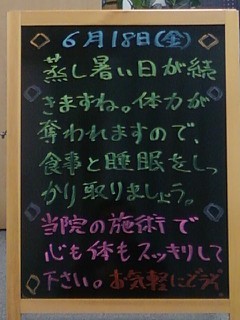 6月18日(金)
蒸し暑い日が続
きますね。体力が
奪われますので、
食事と睡眠をしっ
かり取りましょう。
当院の施術で
心も体もスッキリして
下さい。お気軽にどうぞ